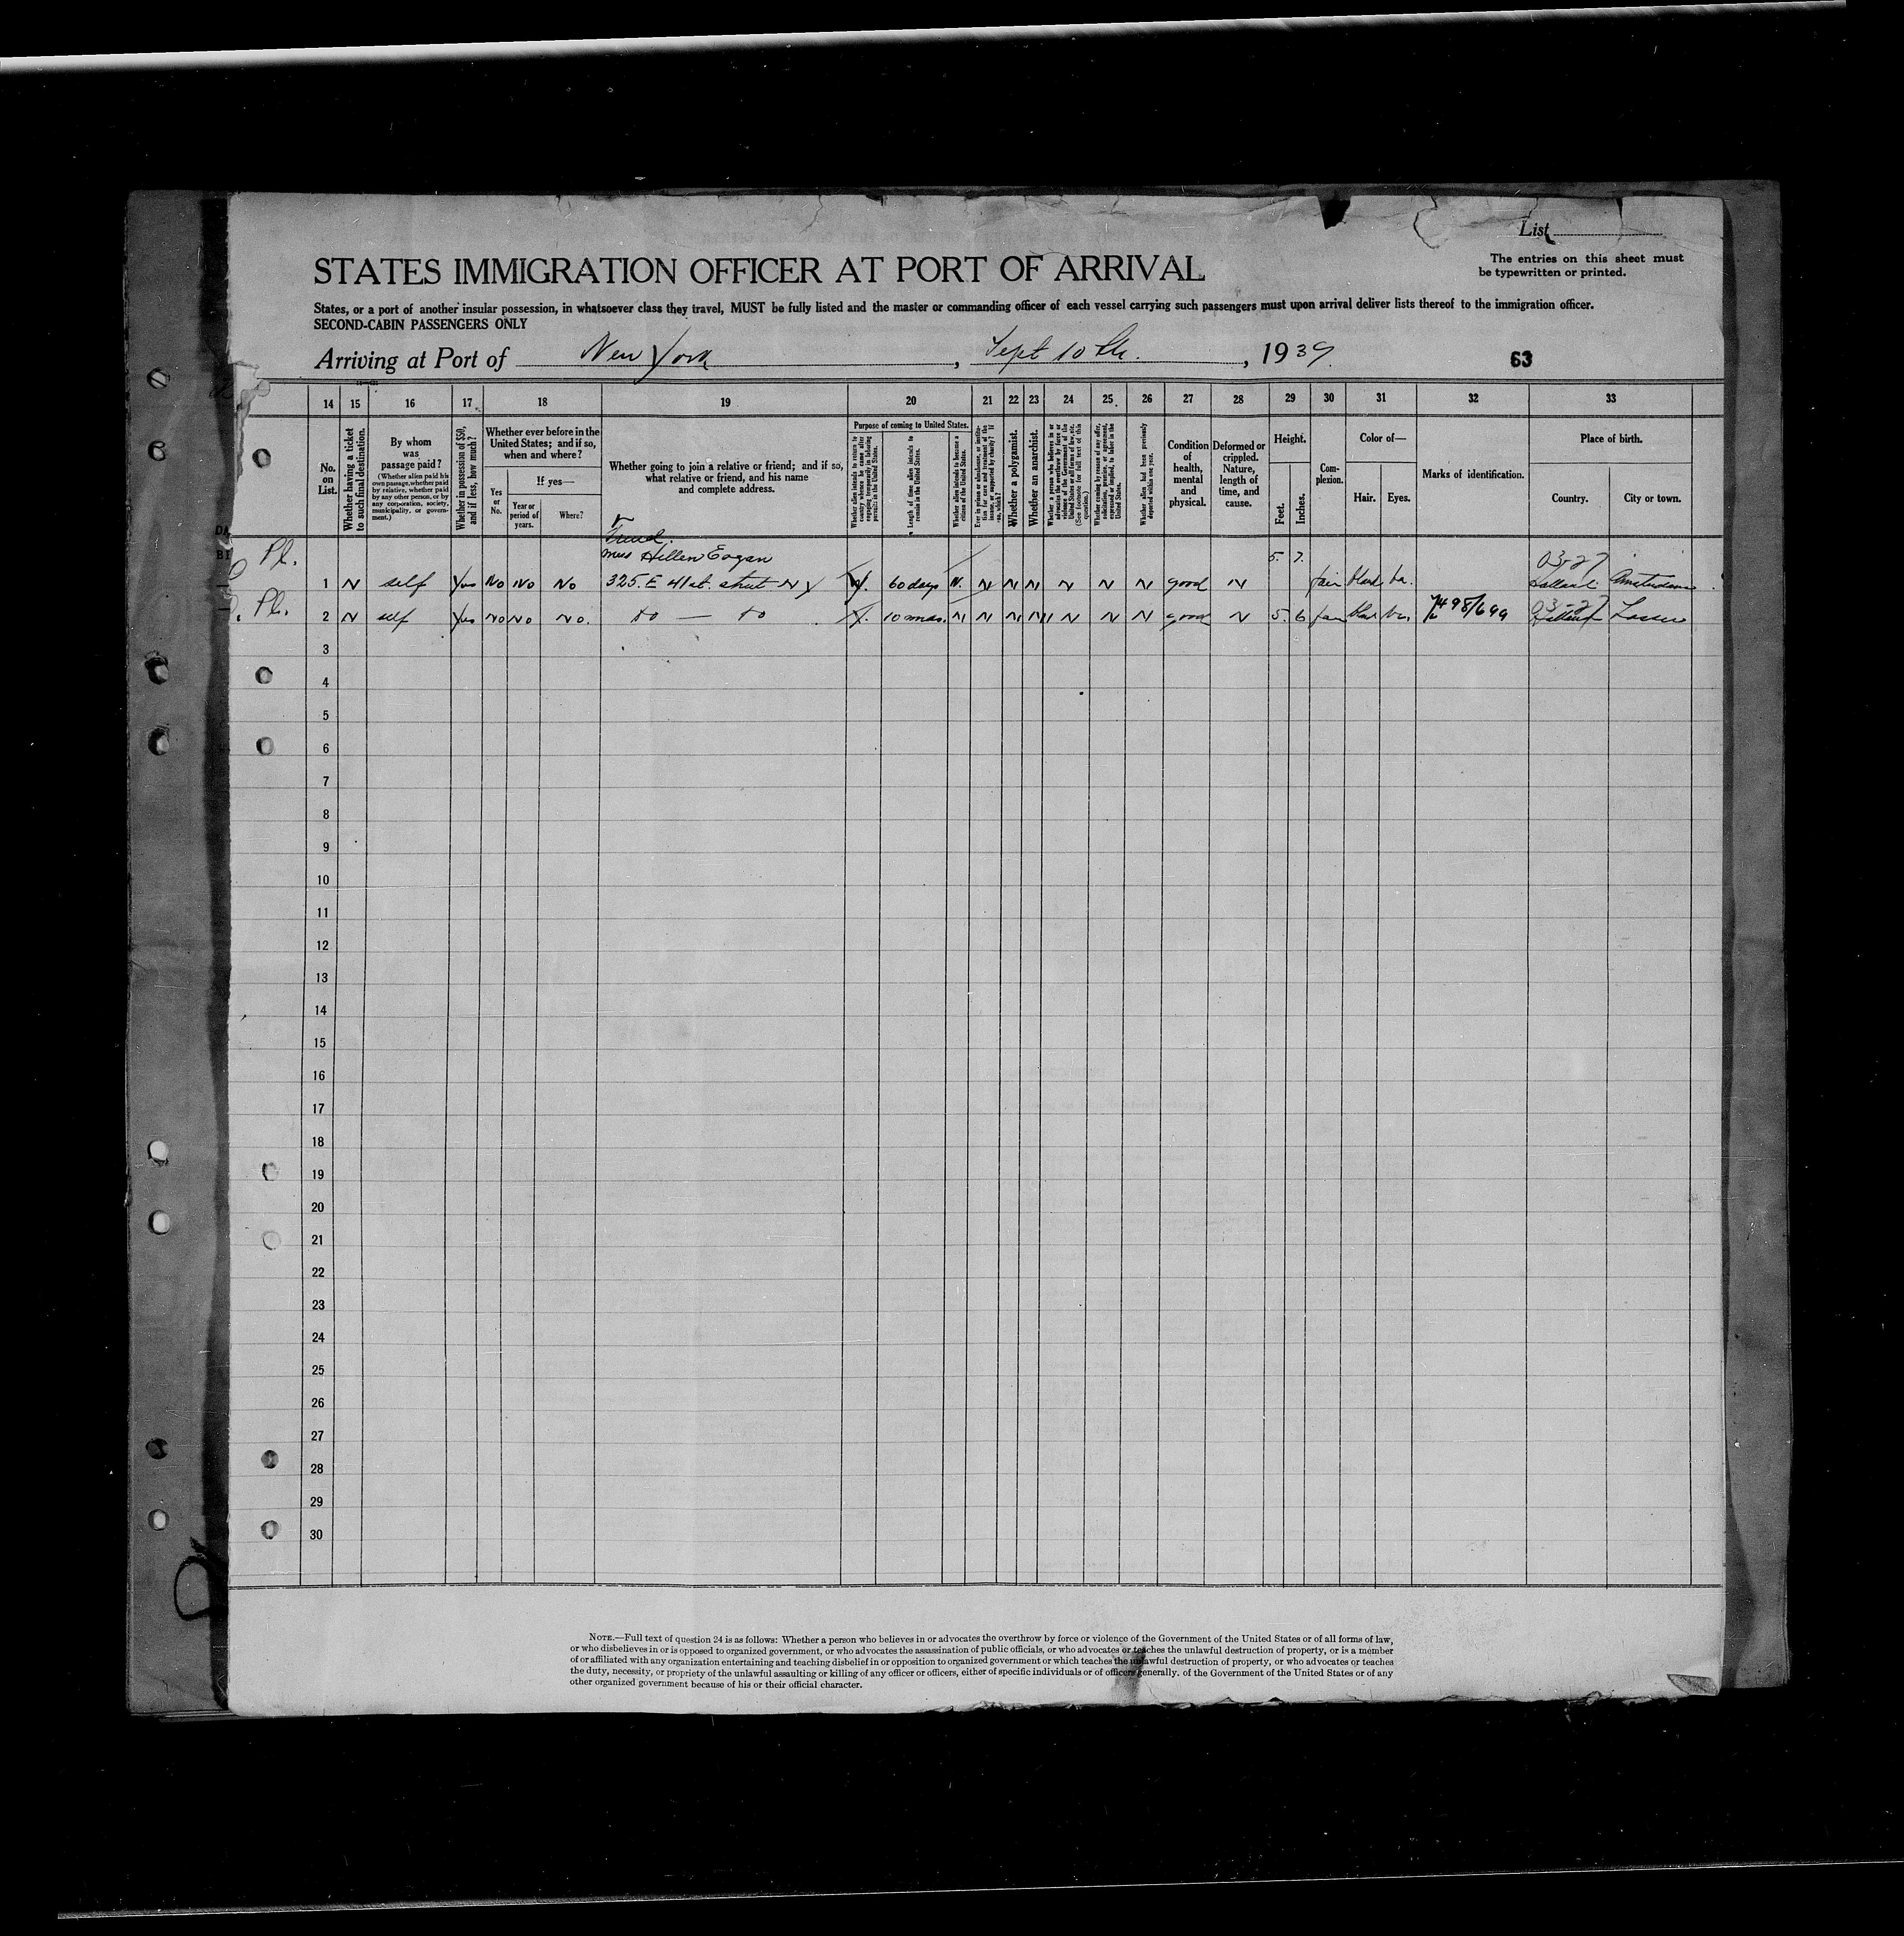 List
STATES IMMIGRATION OFFICER AT PORT OF ARRIVAL
The entries on this sheet must
be typewritten or printed.
States, or a port of another insular possession, in whatsoever class they travel, MUST be fully listed and the master or commanding officer of each vessel carrying such passengers must upon arrival deliver lists thereof to the immigration officer.
SECOND-CABIN PASSENGERS ONLY
Arriving at Port of New York, Sept 10th., 1939. 63
14 15 16 17 18 19 20 21 22 23 24 25 26 27 28 29 30 31 32 33
No. on List.
Whether having a ticket to such final destination.
By whom was passage paid?
(Whether alien paid his own passage, whether paid by relative, whether paid by any other person, or by any corporation, society, municipality, or government.)
Whether in possession of $50, and if less, how much?
Whether ever before in the United States; and if so, when and where?
Yes or No.
If yes—
Year or period of years.
Where?
Whether going to join a relative or friend; and if so, what relative or friend, and his name and complete address.
Purpose of coming to United States.
Whether alien intends to return to country whence he came after engaging temporarily in laboring pursuits in the United States.
Length of time alien intends to remain in the United States.
Whether alien intends to become a citizen of the United States.
Ever in prison or almshouse, or institution for care and treatment of the insane, or supported by charity? If so, which?
Whether a polygamist.
Whether an anarchist.
Whether a person who believes in or advocates the overthrow by force or violence of the Government of the United States or all forms of law, etc. (See footnote for full text of this question.)
Whether coming by reason of any offer, solicitation, promise, or agreement, expressed or implied, to labor in the United States.
Whether alien had been previously deported within one year.
Condition of health, mental and physical.
Deformed or crippled. Nature, length of time, and cause.
Height.
Feet.
Inches.
Complexion.
Color of—
Hair.
Eyes.
Marks of identification.
Place of birth.
Country.
City or town.
Friend.
Pl. Miss Hellen Eagan 5. 7. 03-27
1 N self Yes No No No 325. E 41st. street N Y N. 60 days N. N N N N N N good N fair black br. Holland Amsterdam
Pl. 7/498/699 03-27
2 N self Yes No No No. do — do N. 10 mos. N N N N N N N good N 5. 6 fair black br. Holland
3
4
5
6
7
8
9
10
11
12
13
14
15
16
17
18
19
20
21
22
23
24
25
26
27
28
29
30
NOTE.—Full text of question 24 is as follows: Whether a person who believes in or advocates the overthrow by force or violence of the Government of the United States or of all forms of law,
or who disbelieves in or is opposed to organized government, or who advocates the assassination of public officials, or who advocates or teaches the unlawful destruction of property, or is a member
of or affiliated with any organization entertaining and teaching disbelief in or opposition to organized government or which teaches the unlawful destruction of property, or who advocates or teaches
the duty, necessity, or propriety of the unlawful assaulting or killing of any officer or officers, either of specific individuals or of officers generally, of the Government of the United States or of any
other organized government because of his or their official character.